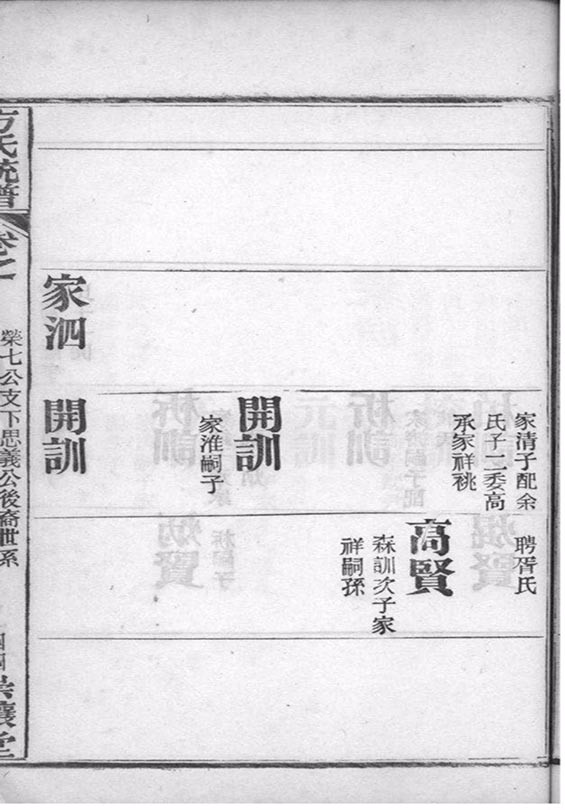 家清子配余
氏子二委高
承家祥祧
聘胥氏
高賢
森訓次子家
祥嗣孫
開訓
家淮嗣子
家泗
開訓
方氏統譜
卷之一
榮七公支下思義公後裔世系